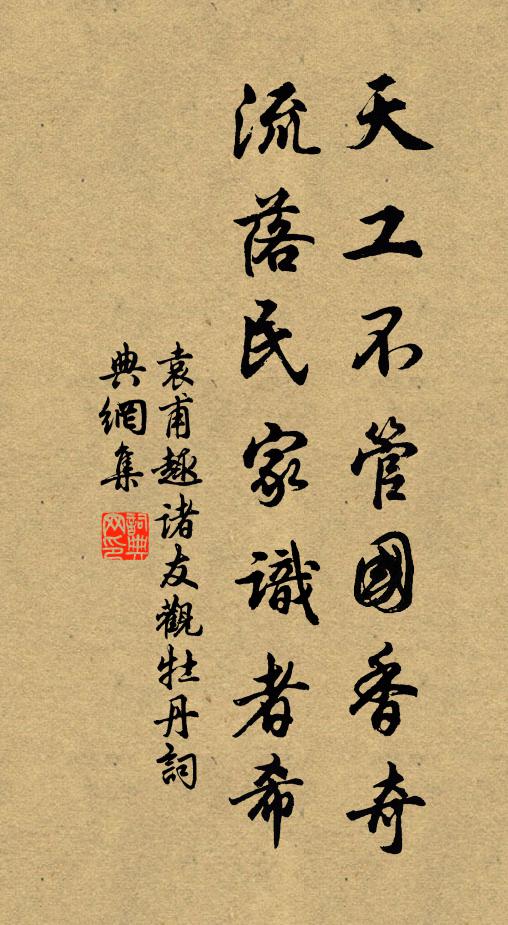 天工不管國香奇
流落民家識者希
袁甫趣諸友觀牡丹詞
典網集
詞典網印